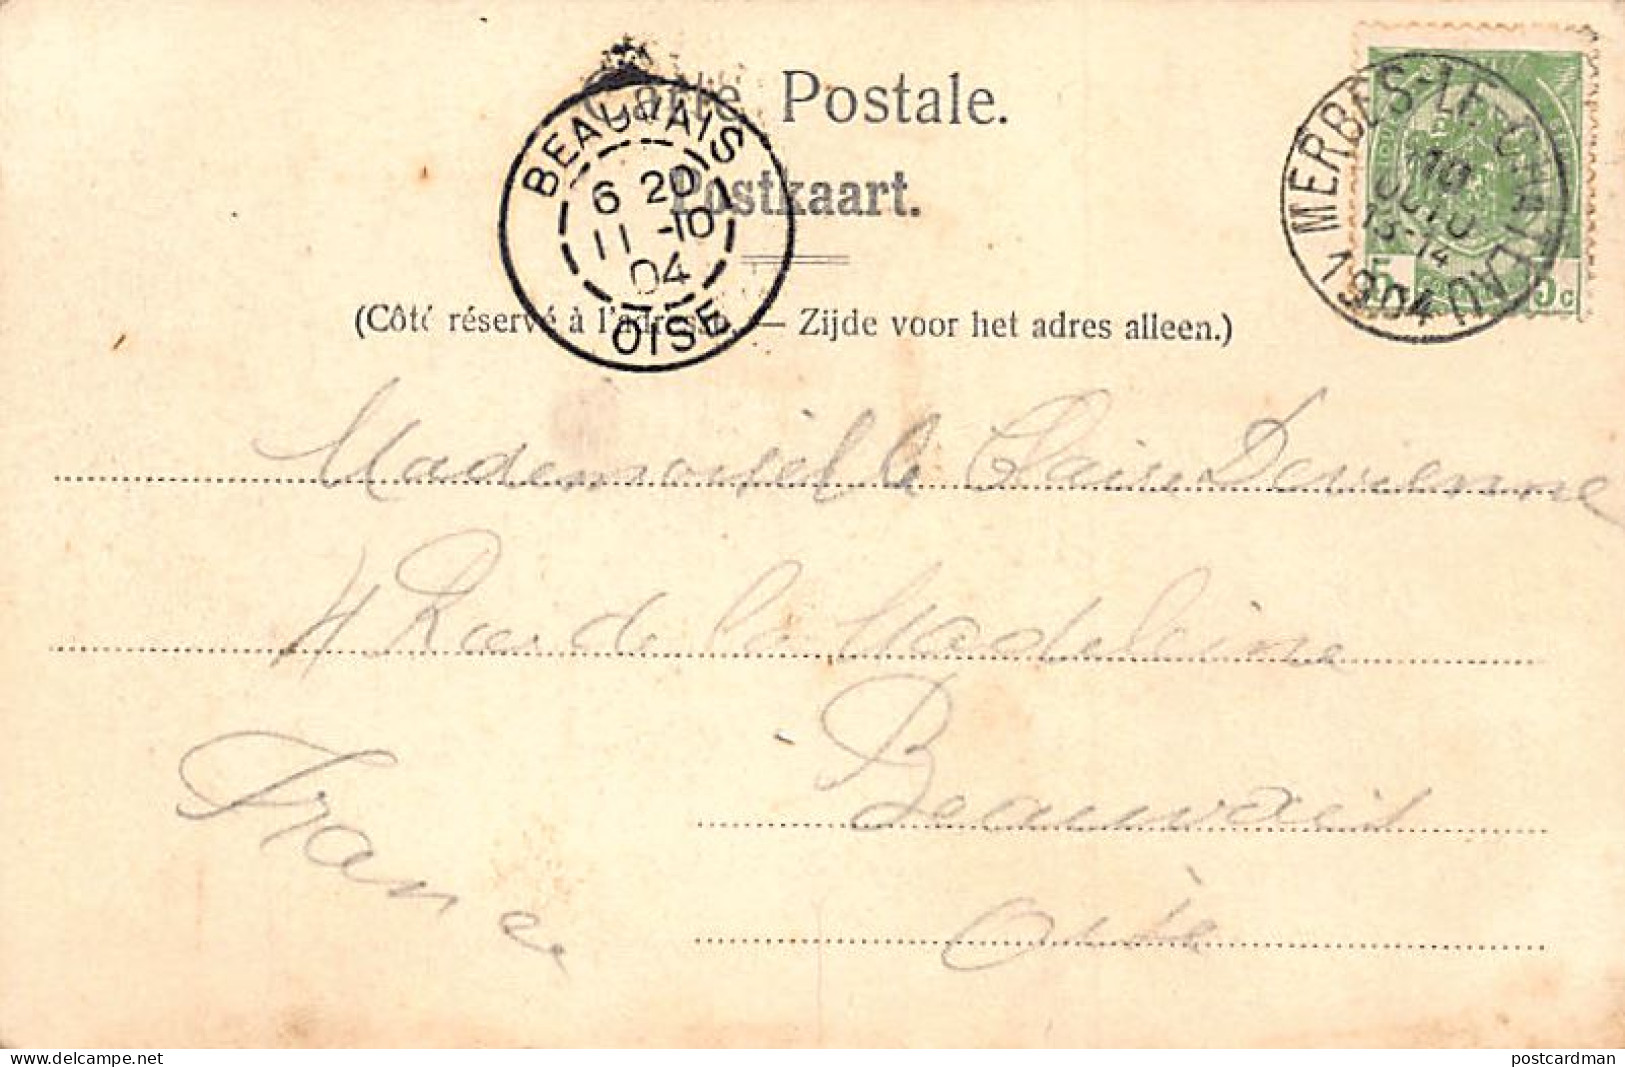 Carte Postale.
Postkaart.
(Côté réservé à l'adresse. — Zijde voor het adres alleen.)
BEAUVAIS
6 20
11 -10
04
OISE
MERBES-LE-CHATEAU
10
OCTO
13-14
1904
5 5c
Mademoiselle Clair Devienne
4 Rue de la Madeleine
Beauvais
Oise
France
www.delcampe.net
postcardman